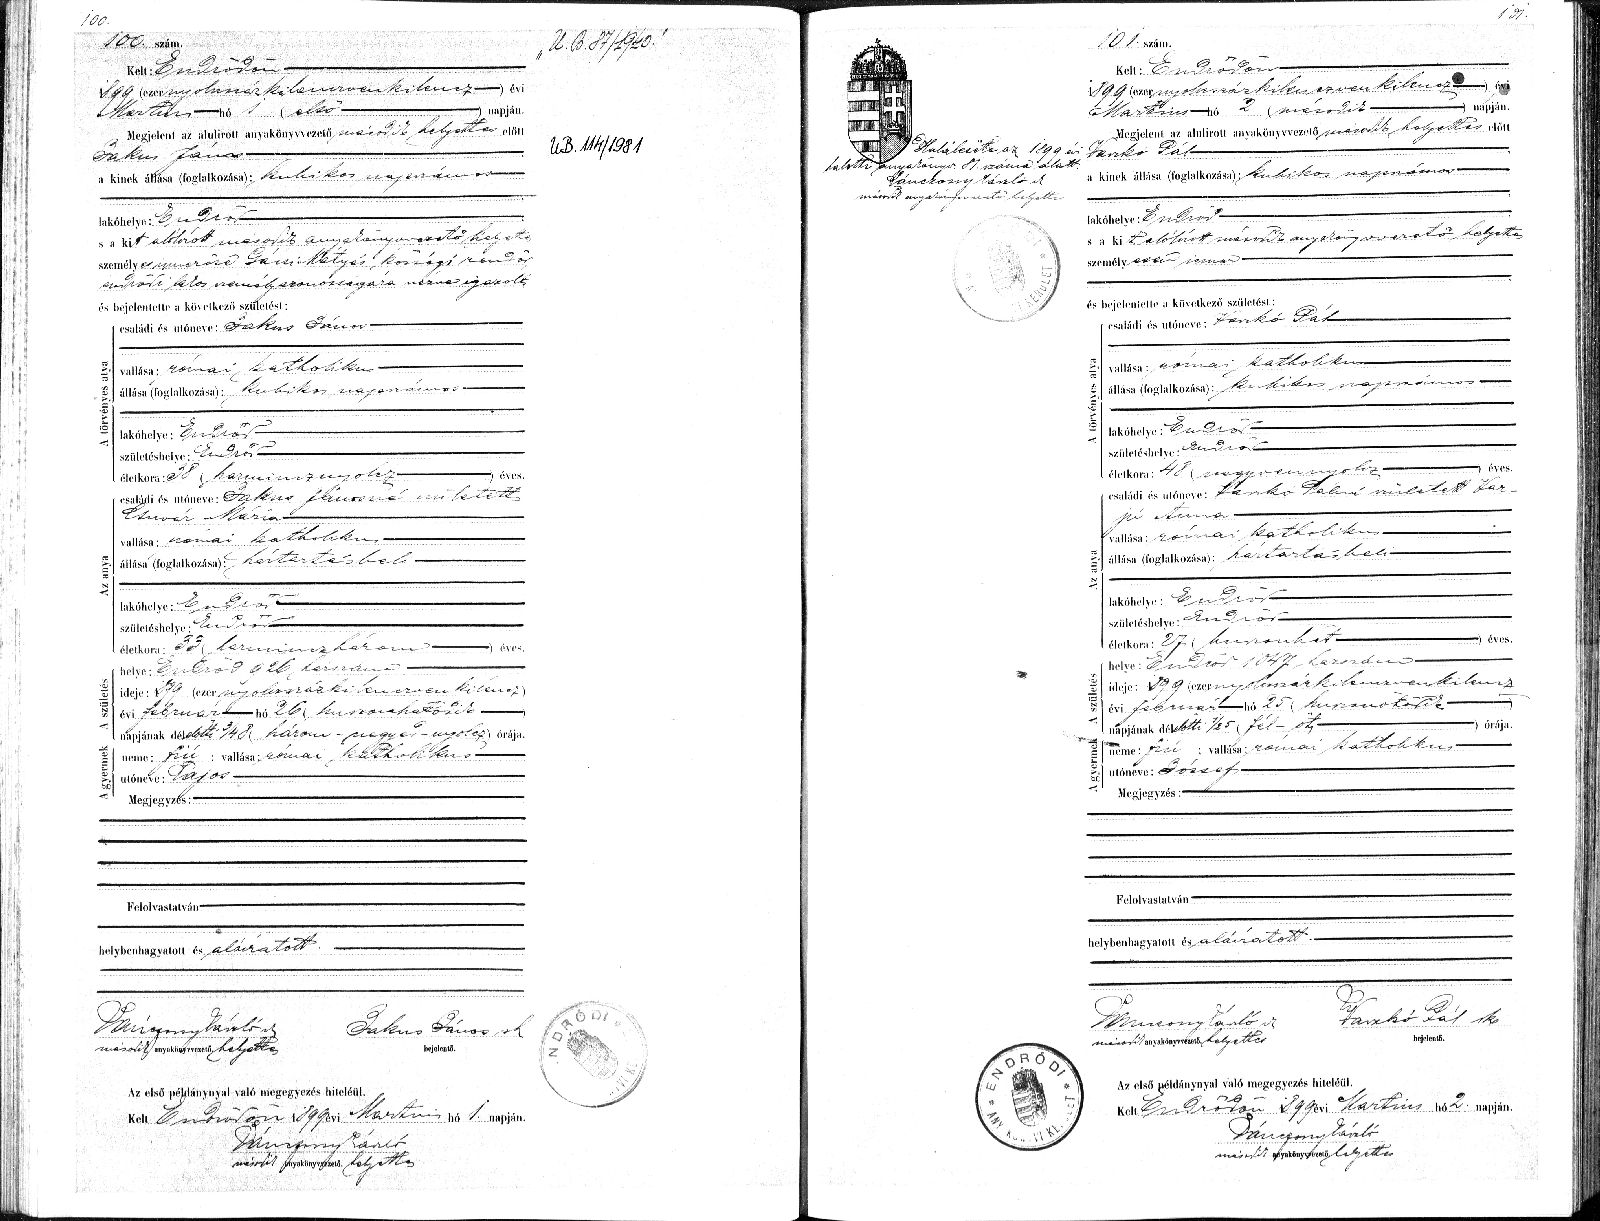 100.
100. szám.
Kelt: Endrődön
1899 (ezernyolcszázkilenczvenkilencz) évi
Martius hó 1 (első) napján.
Megjelent az alulirott anyakönyvvezető második helyettes előtt
Jakus János
a kinek állása (foglalkozása): kubikos napszámos
lakóhelye: Endrőd
s a kit alólirott második anyakönyvvezető helyettes
személy Mátyás községi rendőr
endrődi lakos személyazonosságára nézve igazolt,
és bejelentette a következő születést:
A törvényes atya
családi és utóneve: Jakus János
vallása: római katholikus
állása (foglalkozása): kubikos napszámos
lakóhelye: Endrőd
születéshelye: Endrőd
életkora: 38 (harmincznyolcz) éves.
Az anya
családi és utóneve: Jakus Jánosné született
Mária
vallása: római katholikus
állása (foglalkozása): háztartásbeli
lakóhelye: Endrőd
születéshelye: Endrőd
életkora: 33 (harminczhárom) éves.
A születés
helye: Endrőd 926 házszám
ideje: 1899 (ezernyolcszázkilenczvenkilencz)
évi február hó 26 (huszonhatodik)
napjának délelőtti 3/48 (három-negyed-nyolcz) órája.
A gyermek
neme: fiú ; vallása: római katholikus
utóneve: Lajos
Megjegyzés:
Felolvastatván
helybenhagyatott és aláiratott.
Vánczony László
második anyakönyvvezető helyettes
Jakus János sk
bejelentő.
Az első példánynyal való megegyezés hiteléül.
Kelt Endrődön 1899 évi Martius hó 1. napján.
Vánczony László
második anyakönyvvezető helyettes
"U. B. 87/1940."
U.B. 114/1981
NDRŐDI
101.
101. szám.
Kelt: Endrődön
1899 (ezernyolcszázkilenczvenkilencz) évi
Martius hó 2 (második) napján.
Megjelent az alulirott anyakönyvvezető második helyettes előtt
Vaszkó Pál
a kinek állása (foglalkozása): kubikos napszámos
lakóhelye: Endrőd
s a kit alólirott második anyakönyvvezető helyettes
személyesen ismer
és bejelentette a következő születést:
A törvényes atya
családi és utóneve: Vaszkó Pál
vallása: római katholikus
állása (foglalkozása): kubikos napszámos
lakóhelye: Endrőd
születéshelye: Endrőd
életkora: 48 (negyvennyolcz) éves.
Az anya
családi és utóneve: Vaszkó Pálné született
Anna
vallása: római katholikus
állása (foglalkozása): háztartásbeli
lakóhelye: Endrőd
születéshelye: Endrőd
életkora: 27 (huszonhét) éves.
A születés
helye: Endrőd 1047 házszám
ideje: 1899 (ezernyolcszázkilenczvenkilencz
évi február hó 25 (huszonötödik)
napjának délelőtti 1/25 (fél-öt) órája.
A gyermek
neme: fiú ; vallása: római katholikus
utóneve: József
Megjegyzés:
Felolvastatván
helybenhagyatott és aláiratott.
Vánczony László
második anyakönyvvezető helyettes
Vaszkó Pál sk
bejelentő.
Az első példánynyal való megegyezés hiteléül.
Kelt Endrődön 1899 évi Martius hó 2. napján.
Vánczony László
második anyakönyvvezető helyettes
az 1899 évi
halotti anyakönyv 81 száma alatt
Vánczony László
második anyakönyvvezető helyettes
ENDRŐDI